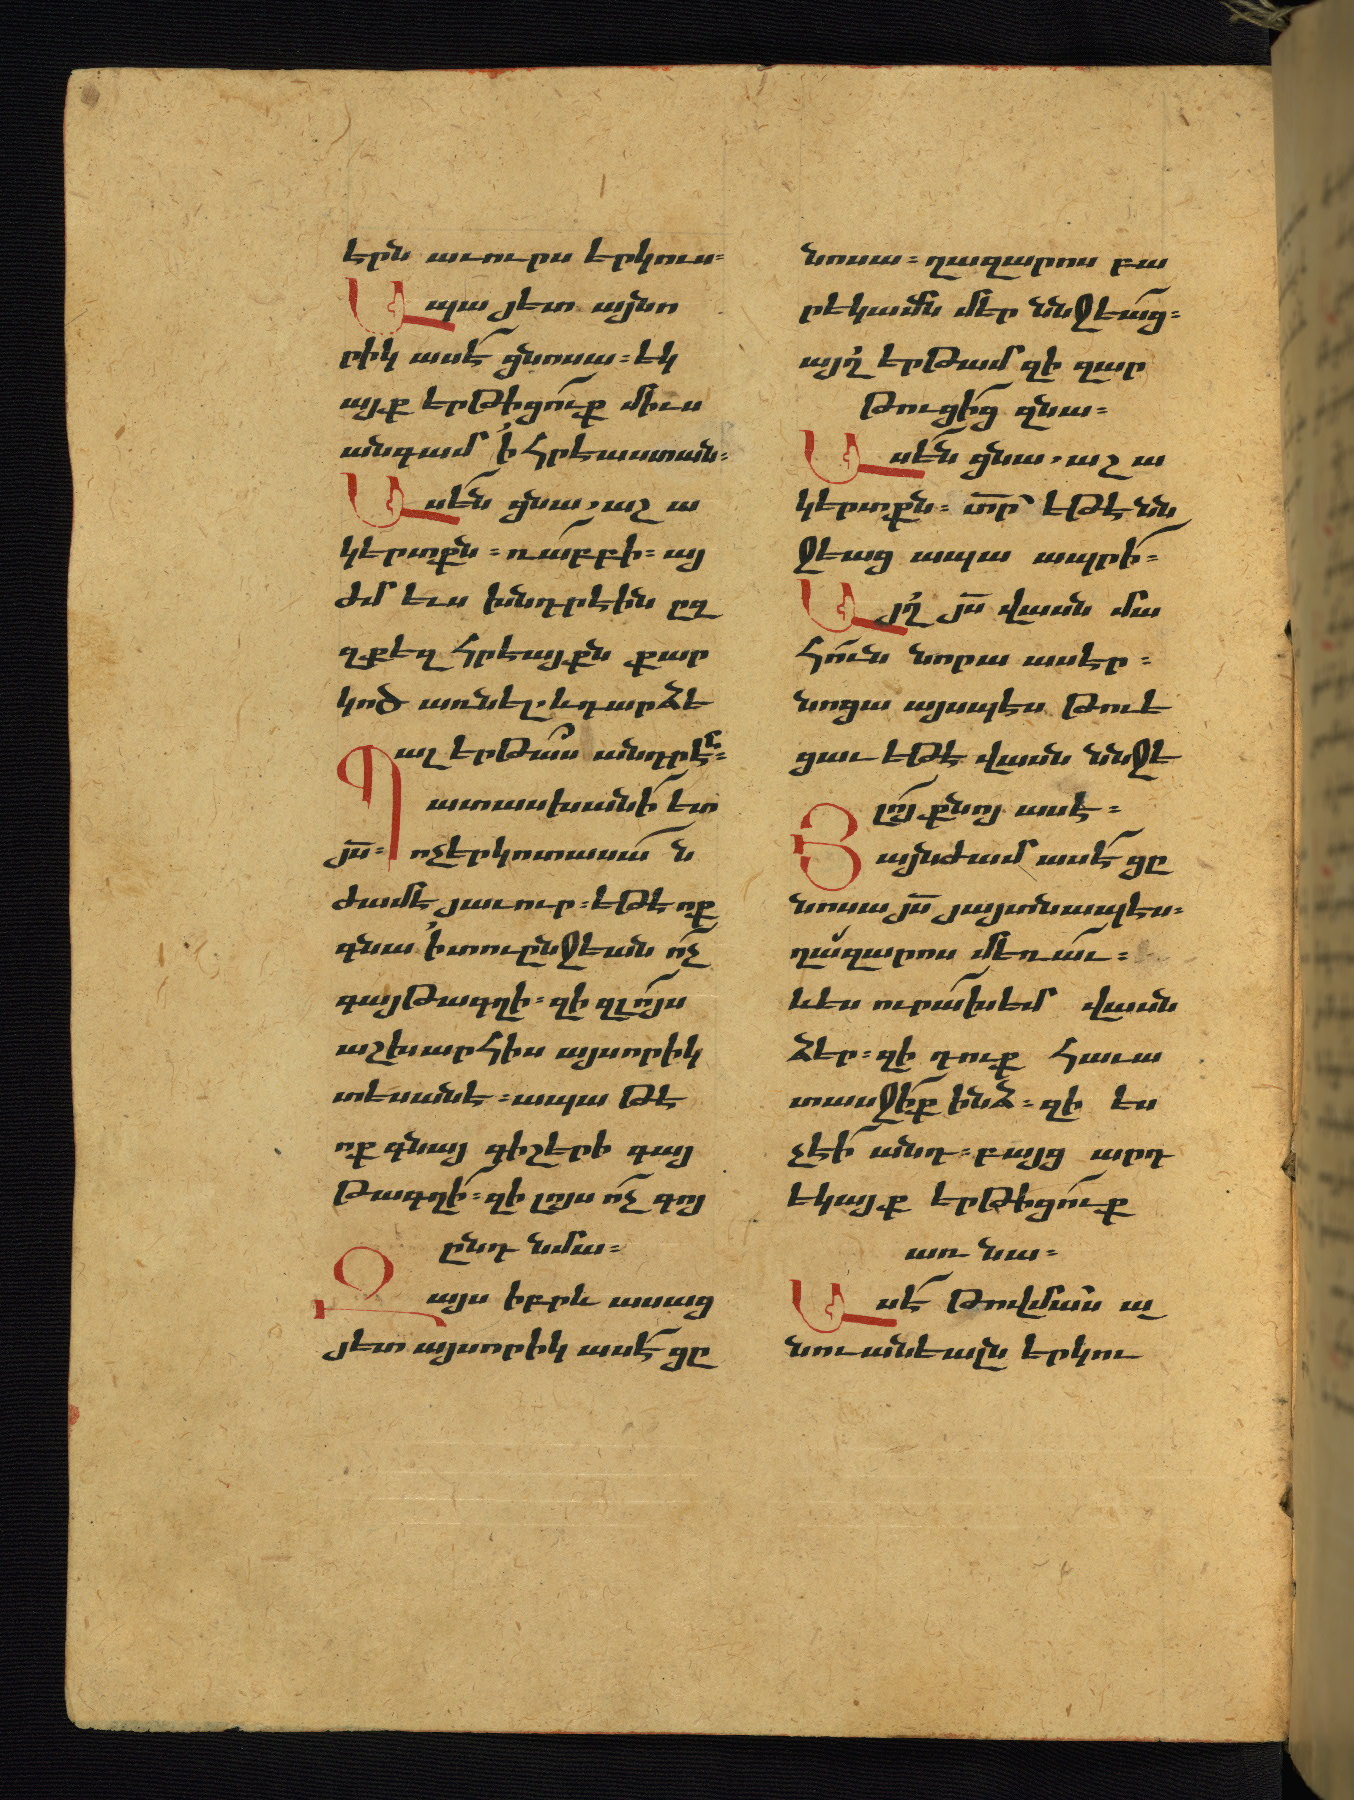 երն աւուրս երկուս։
Ապա յետ այնո
րիկ ասէ ցնոսա։ եկ
այք երթիցուք միւս
անգամ ի հրեաստան։
Ասեն ցնա, աշա
կերտքն։ ռաբբի։ այ
ժմ եւս խնդրէին ըզ
զքեզ հրեայքն քար
կոծ առնել. և դարձե
ալ երթաս անդրէն։
Պատասխանի ետ
յս։ ոչ երկոտասան
ժամէ յաւուր։ եթէ ոք
գնա ի տուընջեան ոչ
գայթագղի։ զի զլոյս
աշխարհիս այսորիկ
տեսանէ։ ապա թէ
ոք գնայ գիշերի գայ
թագղի։ զի լոյս ոչ գոյ
ընդ նմա։
Զայս իբրև ասաց
յետ այսորիկ ասէ ցը
նոսա։ ղազարոս բա
րեկամն մեր ննջեաց։
այղ երթամ զի զար
թուցից զնա։
Ասեն ցնա, աշա
կերտքն։ տր՝ եթէ նն
ջեաց ապա ապրի։
Այղ յս վասն մա
հուն նորա ասէր։
նոցա այսպէս թուե
ցաւ եթէ վասն ննջե
լոյ քնոյ ասէ։
Յայնժամ ասէ ցը
նոսա յս յայտնապէս։
ղազարոս մեռաւ։
և ես ուրախեմ վասն
ձեր։ զի դուք հաւա
տասջիք ինձ։ զի ես
չէի անդ։ բայց արդ
եկայք երթիցուք
առ նա։
Ասէ թովմաս ա
նուանեալն երկու